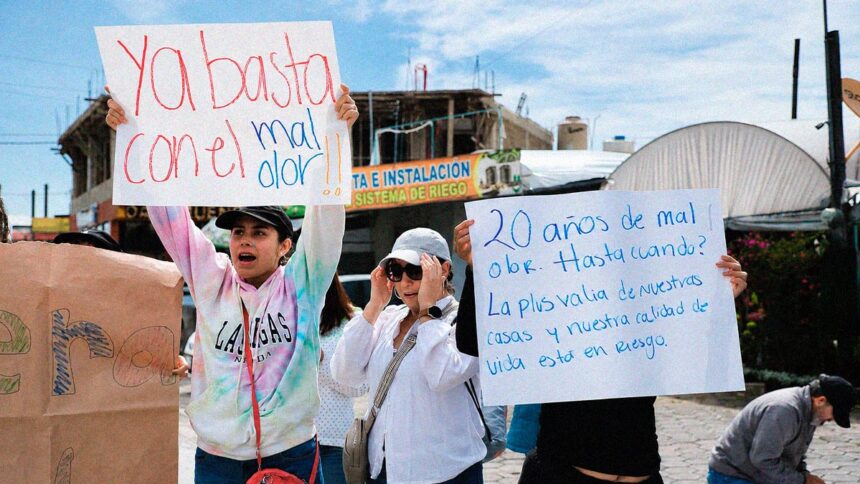 Ya basta
con el mal
olor!!
TA E INSTALACIÓN
SISTEMA DE RIEGO
20 años de mal
olor. Hasta cuando?
La plusvalia de nuestras
casas y nuestra calidad de
vida está en riesgo.
LAS VEGAS
NEVADA